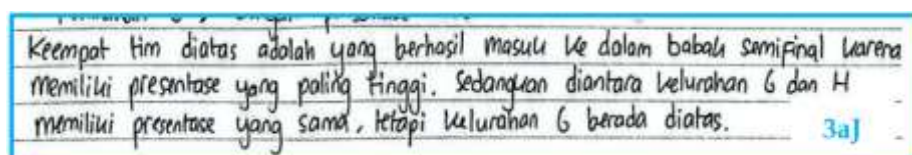 Keempat tim diatas adalah yang berhasil masuk ke dalam babak semifinal karena
memiliki presentase yang paling tinggi. Sedangkan diantara kelurahan G dan H
memiliki presentase yang sama, tetapi kelurahan G berada diatas.
3aJ